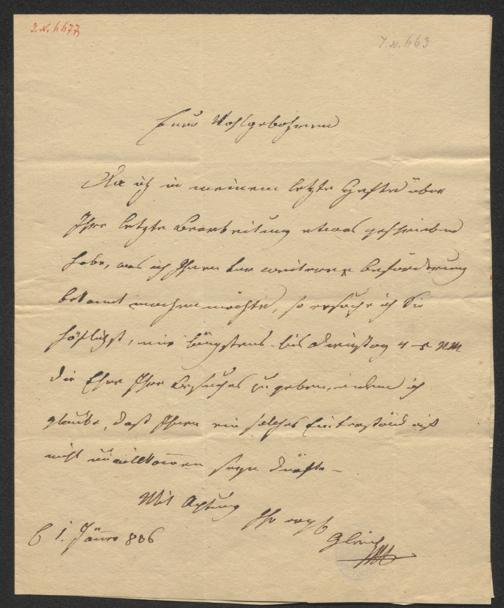 I. N. 6677
I. N. 663
Euer Wohlgebohren
Da ich in meinem letzte Hefte über
Ihre letzte Bearbeitung etwas geschrieben
habe, was ich Ihnen vor weiterer Beförderung
bekannt machen möchte, so ersuche ich Sie
höflichst, mir längstens bis Dienstag 4 - 5
die Ehre Ihres Besuches zu geben, indem ich
glaube, daß Ihnen ein solches Einverständniß
nicht unwillkommen seyn dürfte —
Mit Achtung
Ihr
Gleich
1. Jänner 806